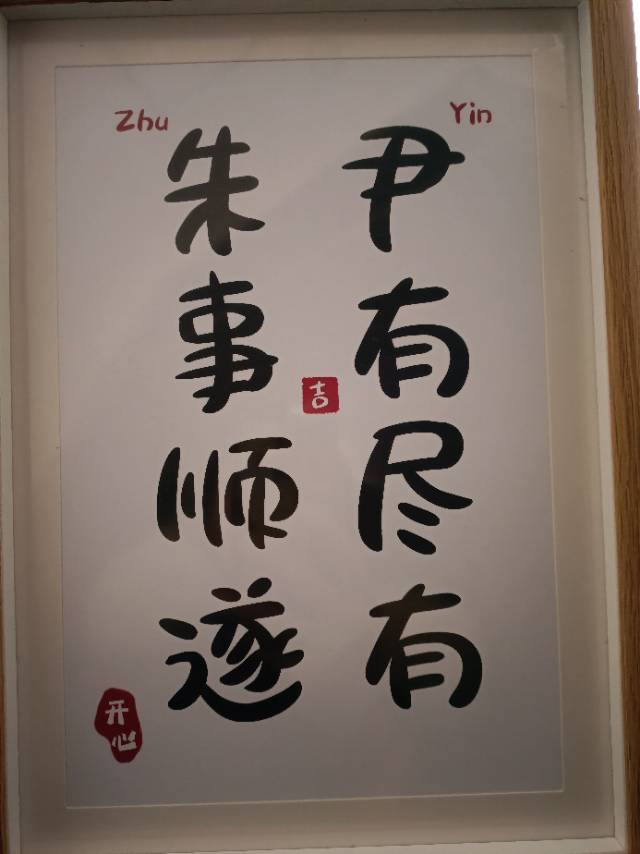 Yin
尹有尽有
Zhu
朱事顺遂
吉
开心